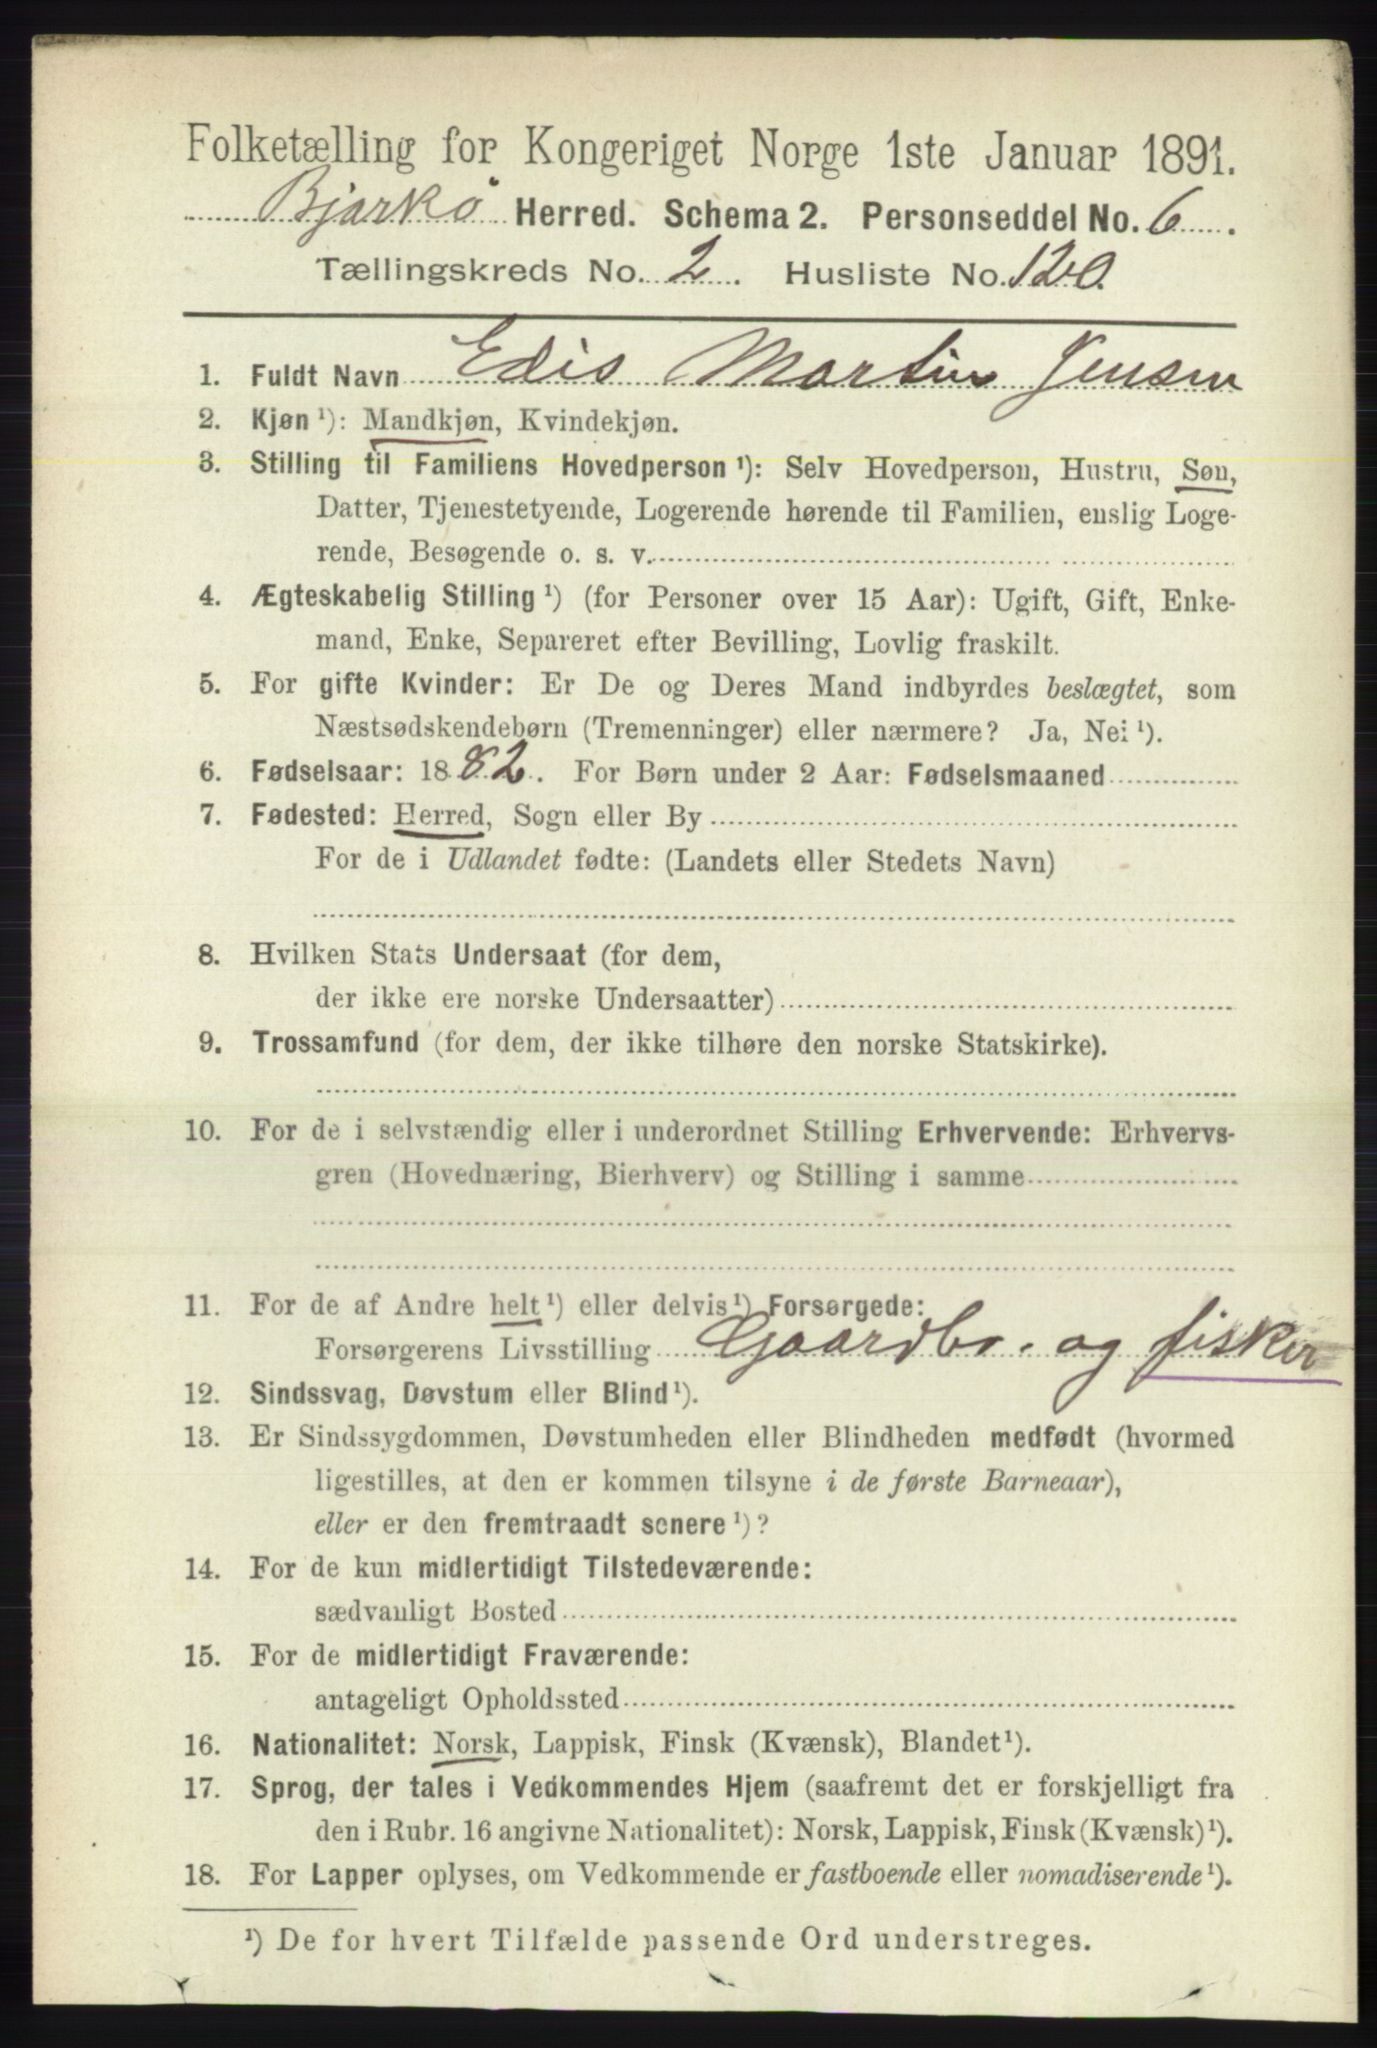 Folketælling for Kongeriget Norge 1ste Januar 1891.
Bjarkö Herred. Schema 2. Personseddel No. 6.
Tællingskreds No. 2. Husliste No. 120.
1. Fuldt Navn Edis Martin Jensen
2. Kjøn ¹): Mandkjøn, Kvindekjøn.
3. Stilling til Familiens Hovedperson ¹): Selv Hovedperson, Hustru, Søn,
Datter, Tjenestetyende, Logerende hørende til Familien, enslig Loge-
rende, Besøgende o. s. v.
4. Ægteskabelig Stilling ¹) (for Personer over 15 Aar): Ugift, Gift, Enke-
mand, Enke, Separeret efter Bevilling, Lovlig fraskilt.
5. For gifte Kvinder: Er De og Deres Mand indbyrdes beslægtet, som
Næstsødskendebørn (Tremenninger) eller nærmere? Ja, Nei ¹).
6. Fødselsaar: 1882. For Børn under 2 Aar: Fødselsmaaned
7. Fødested: Herred, Sogn eller By
For de i Udlandet fødte: (Landets eller Stedets Navn)
8. Hvilken Stats Undersaat (for dem,
der ikke ere norske Undersaatter)
9. Trossamfund (for dem, der ikke tilhøre den norske Statskirke).
10. For de i selvstændig eller i underordnet Stilling Erhvervende: Erhvervs-
gren (Hovednæring, Bierhverv) og Stilling i samme
11. For de af Andre helt ¹) eller delvis ¹) Forsørgede:
Forsørgerens Livsstilling Gaardbr. og fisker
12. Sindssvag, Døvstum eller Blind ¹).
13. Er Sindssygdommen, Døvstumheden eller Blindheden medfødt (hvormed
ligestilles, at den er kommen tilsyne i de første Barneaar),
eller er den fremtraadt senere ¹)?
14. For de kun midlertidigt Tilstedeværende:
sædvanligt Bosted
15. For de midlertidigt Fraværende:
antageligt Opholdssted
16. Nationalitet: Norsk, Lappisk, Finsk (Kvænsk), Blandet ¹).
17. Sprog, der tales i Vedkommendes Hjem (saafremt det er forskjelligt fra
den i Rubr. 16 angivne Nationalitet): Norsk, Lappisk, Finsk (Kvænsk) ¹).
18. For Lapper oplyses, om Vedkommende er fastboende eller nomadiserende ¹).
¹) De for hvert Tilfælde passende Ord understreges.